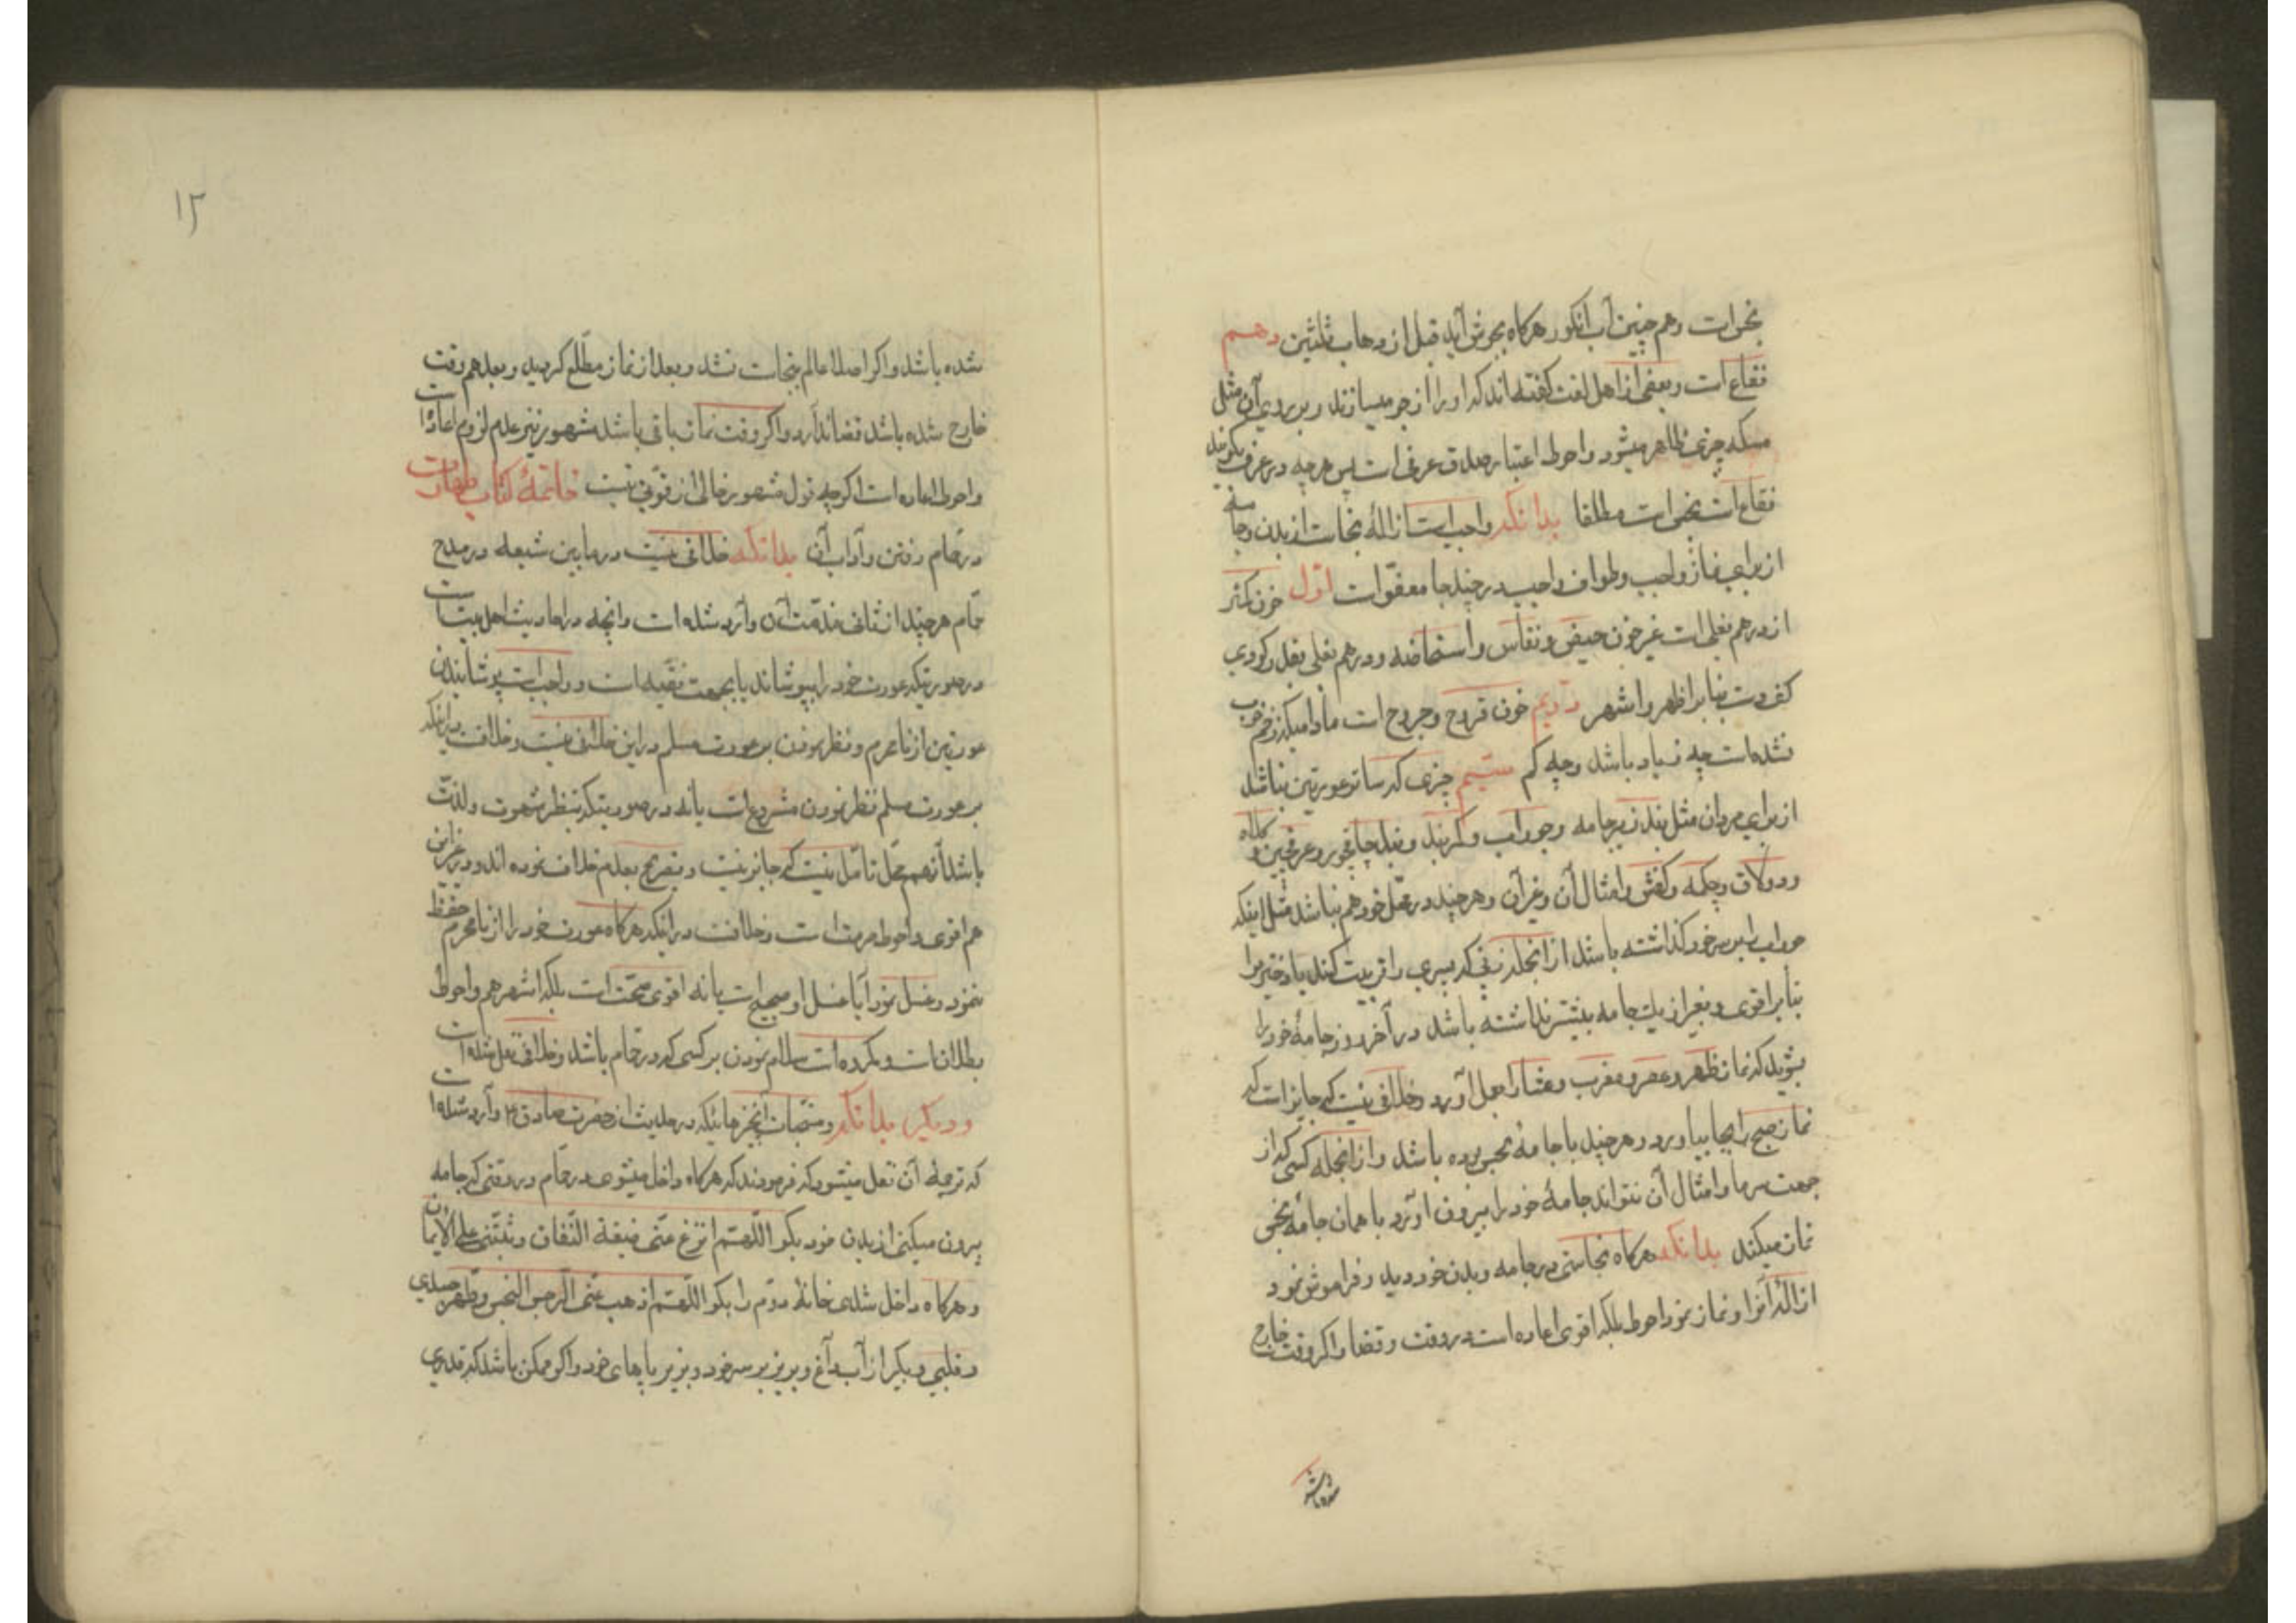 نجس است و هم چنین آب انکور هرکاه بجوش آید قبل از ذهاب ثلثین دهم
فقاع است و بعضی از اهل لغت کفته‌اند که او را از جو میسازند و بر روی آن مثل
مسکه چیزی ظاهر میشود و احوط اعتبار صدق عرفی است پس هرچه در عرف بکویند
فقاع است نجس است مطلقا بدانکه واجب است ازالهٔ نجاست از بدن و جامه
از برای نماز واجب و طواف واجب در چند جا معفوّ است اوّل خون کمتر
از درهم بغلی است غیر خون حیض و نفاس و استحاضه و درهم بغلی بقدر کودی
کف دست بنا بر اظهر و اشهر دویم خون قروح و جروح است مادامیکه زخم خوب
نشده است چه زیاد باشد و چه کم سیّم چیزی که ساتر عورتین نباشد
از برای مردان مثل بند زیرجامه و جوراب و کمربند و بند چاقچور و عرقچین و کلاه
و دولاق و چکمه و کفش و امثال آن و غیر آن و هرچند در محلّ خود هم نباشد مثل اینکه
جوراب را بر سر خود کذاشته باشد از انجمله زنی که پسری را تربیت کند یا دختر را
بنا بر اقوی و بغیر از یک جامه بیشتر نداشته باشد در آخر روز جامهٔ خود را
بشوید که نماز ظهر و عصر و مغرب و عشا را بعمل آورد و خلافی نیست که جایز است که
نماز صبح را بجا بیاورد و هرچند با جامهٔ نجس بوده باشد و از انجمله کسی که از
جهت سرما و امثال آن نتواند جامهٔ خود را بیرون آورد با همان جامهٔ نجس
نماز میکند بدانکه هرکاه نجاستی در جامه و بدن خود دید و فراموش نمود
ازالهٔ آنرا و نماز نمود احوط بلکه اقوی اعاده است در وقت و قضا و اکر وقت خارج
شده باشد
۱۲
شده باشد و اکر اصلا عالم بنجاست نشد و بعد از نماز مطّلع کردید و بعد هم وقت
خارج شده باشد قضا ندارد و اکر وقت نماز باقی باشد مشهور نیز عدم لزوم اعاده است
و احوط اعاده است اکرچه قول مشهور خالی از قوّتی نیست خاتمهٔ کتاب طهارت
در حمّام رفتن و آداب آن بدانکه خلافی نیست در مابین شیعه در مدح
حمّام هرچند از ثانی مذمّت آن وارد شده است و آنچه در احادیث اهل بیت است
در صورتیکه عورت خود را بپوشاند یا بجهت تقیّه است و واجب است پوشانیدن
عورتین از نامحرم و نظر نمودن بر عورت مسلم در این خلافی نیست و خلاف در اینکه
بر عورت مسلم نظر نمودن مشروع است یا نه در صورتیکه بنظر شهوت و لذّت
باشد آنهم محلّ تامّل نیست که جایز نیست و تصریح بعدم خلاف نموده‌اند و در غیر این
هم اقوی و احوط حرمت است و خلافست در اینکه هرکاه عورت خود را از نامحرم حفظ
ننمود و غسل نمود آیا غسل او صحیح است یا نه اقوی صحّت است بلکه اشهر هم و احوط
بطلان است و مکروه است سلام نمودن بر کسی که در حمّام باشد و خلافی نقل شده است
و دیکر بدانکه و منتجبات آنچیزهائیکه در حدیث از حضرت صادق ۴ وارد شده است
که ترجمهٔ آن نقل میشود که فرمودند که هرکاه داخل میشوی در حمّام در وقتی که جامه
بیرون میکنی از بدن خود بکو اللّهمّ انزع عنّی ضیقة النّفاق و ثبّتنی علی الایمان
و هرکاه داخل شدی خانهٔ دوّم را بکو اللّهمّ اذهب عنّی الرّجس النّجس و طهّر جسدی
و قلبی و بکیر از آب داغ و بریز بر سر خود و بریز بر پاهای خود و اکر ممکن باشد که قدری